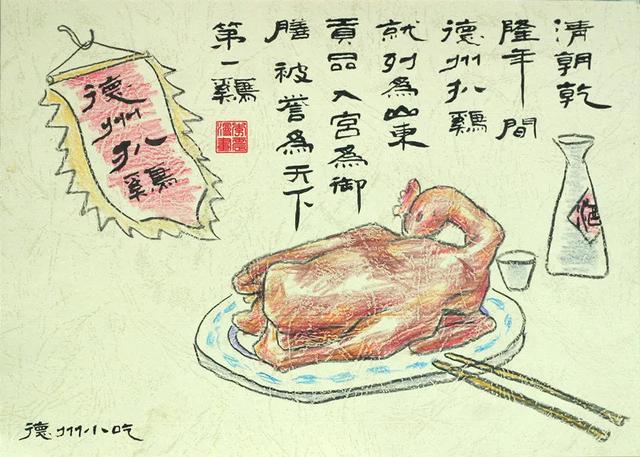 清朝乾
隆年間
德州扒鷄
就列為山東
貢品入宮為御
膳被譽為天下
第一鷄
德州扒鷄
酒
德州小吃